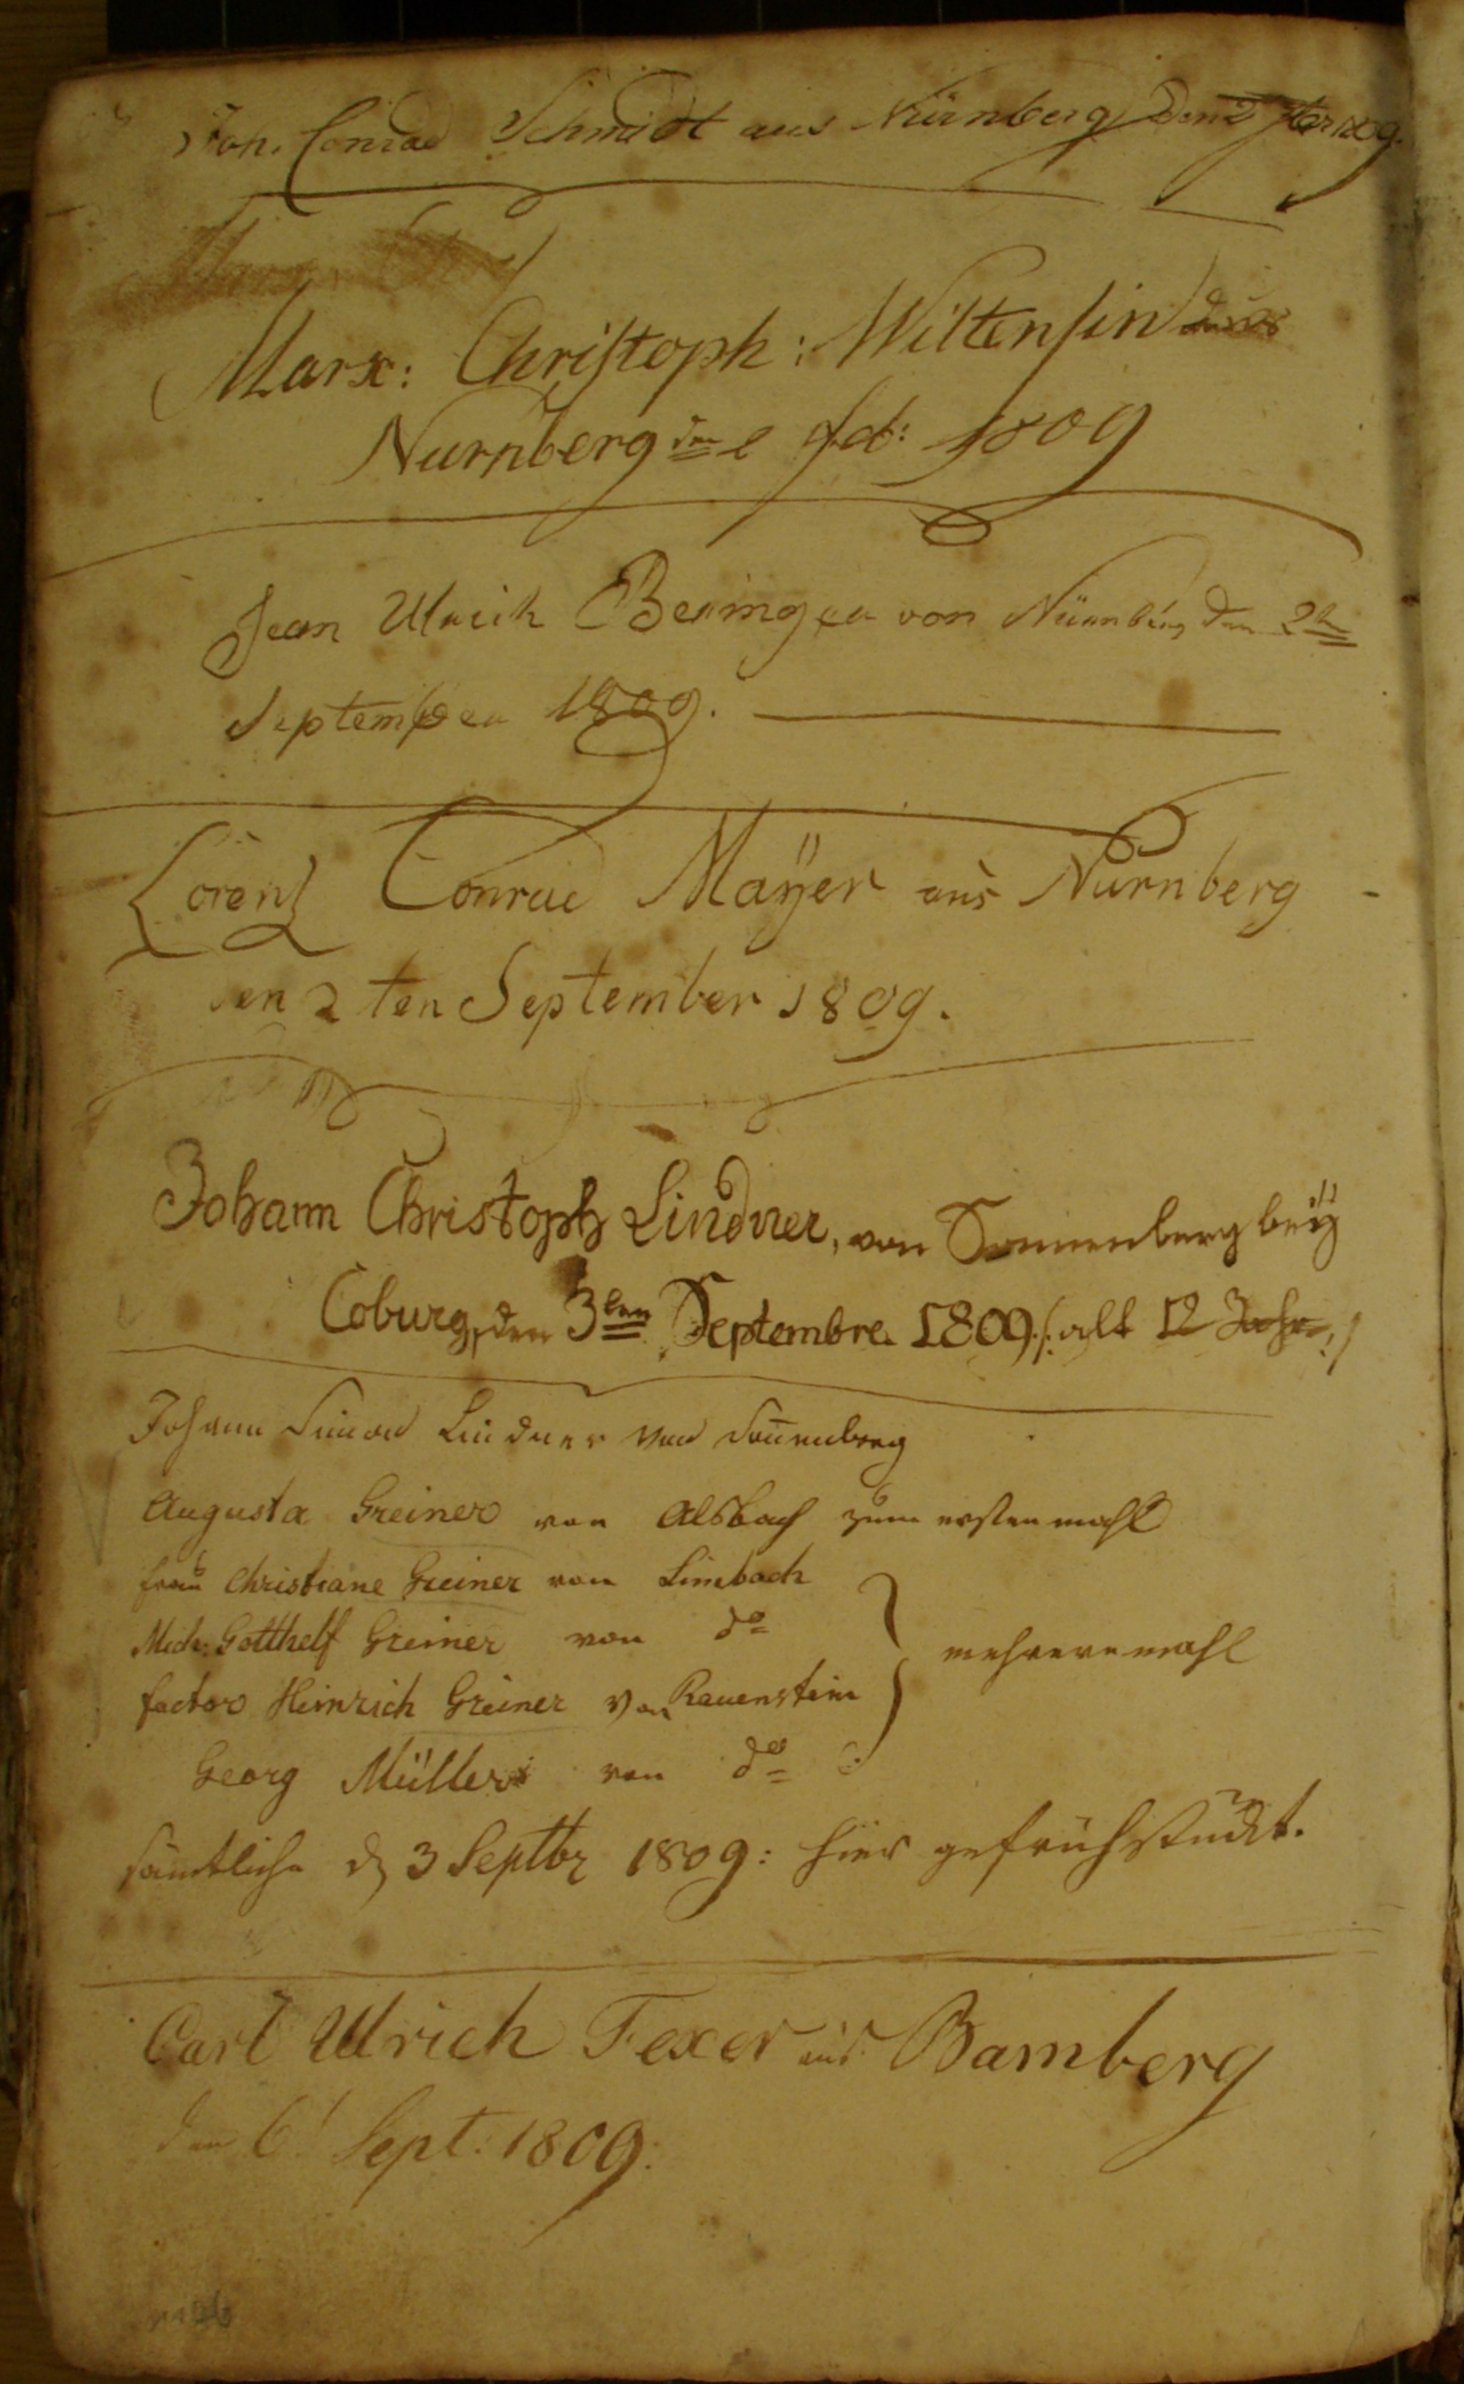 Joh. Conrad Schmidt aus Nürnberg den 2 ter 1809.
Marx: Christoph: Wiltensin aus
Nürnberg den 2 Sept: 1809
Jean Ulrich Beringer von Nürnberg den 2ten
September 1809.
Lorenz Conrad Maÿer aus Nürnberg
den 2 ten September 1809.
Johann Christoph Lindner, von Sonnenberg beÿ
Coburg, den 3ten Septembre 1809 /: alt 12 Jahr :/
Johann Simon Lindner von Son̄enberg
Augusta Greiner von Alsbach zum ersten mahl
Frau Christiane Greiner von Limbach
Mich: Gotthelf Greiner von do
mehrere mahl
factor Heinrich Greiner von Rauenstein
Georg Müller von do
sämtliche d 3 Septbr 1809: hier gefrühstückt.
Carl Ulrich Fexer aus Bamberg
den 6t Sept. 1809.